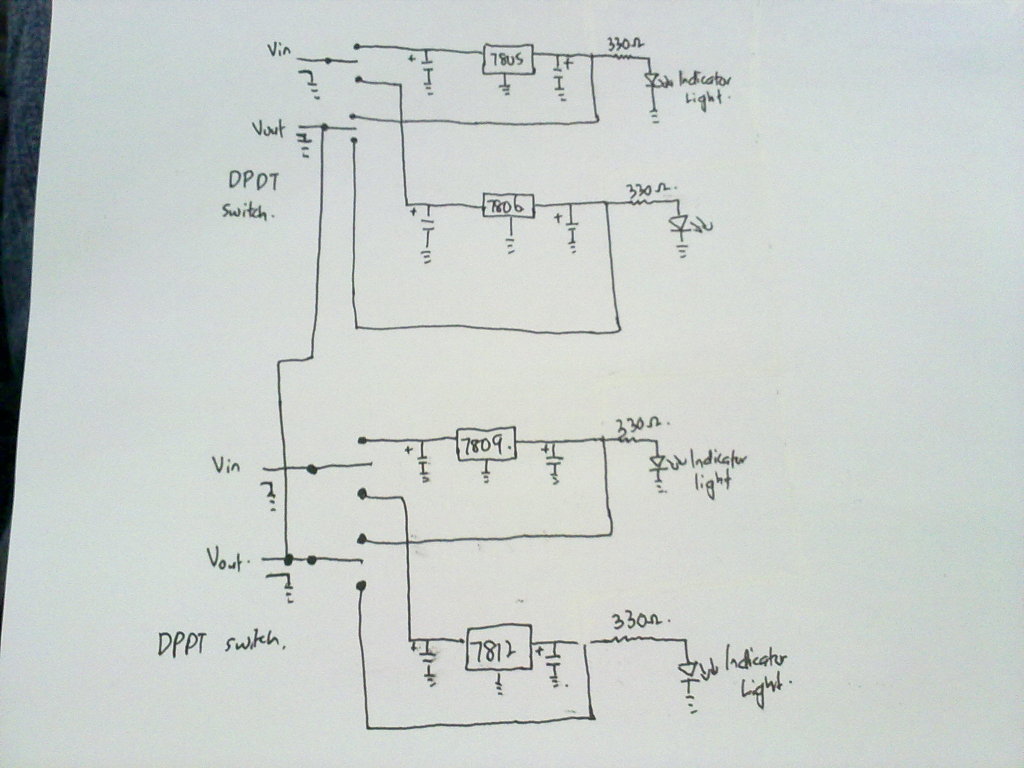 Vin
+
7805
+
330Ω
Indicator
Light.
Vout
DPDT
switch.
+
7806
+
330Ω.
Vin
+
7809.
+
330Ω.
Indicator
light
Vout.
DPPT switch.
+
7812
+
330Ω.
Indicator
Light.